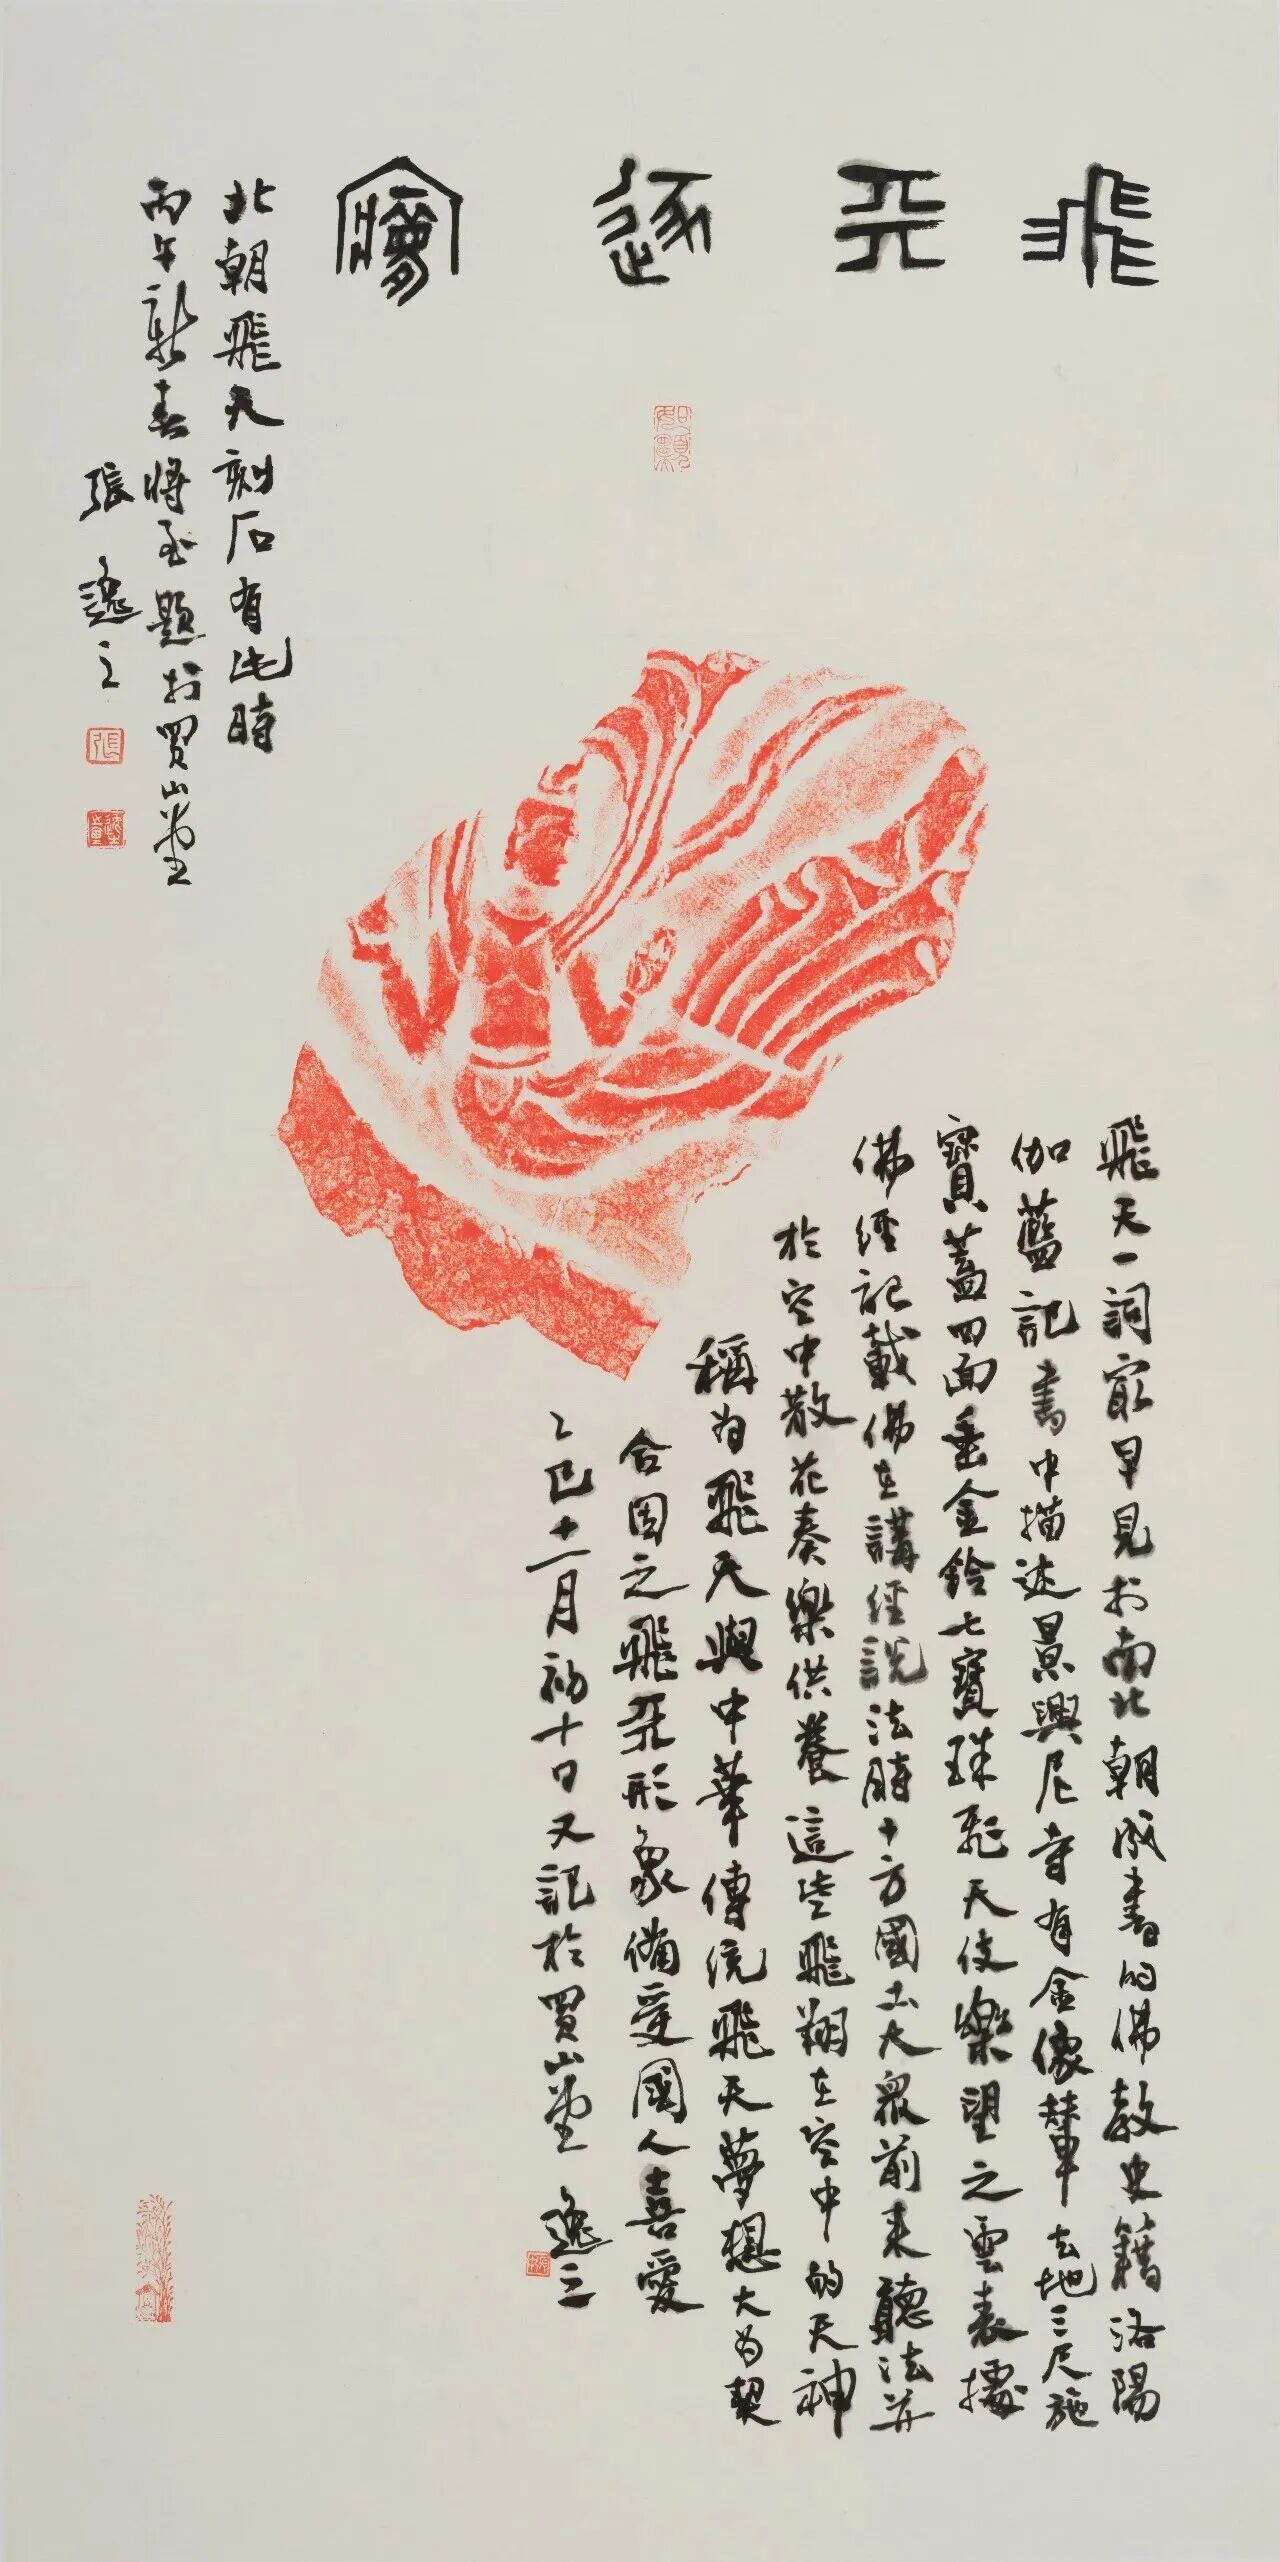 飛天逐㝱
北朝飛天刻石有此時
丙午新春將至題於買山堂
張逸之
如願
張
飛天一詞最早見於南北朝成書的佛教史籍洛陽
伽藍記書中描述景興尼寺有金像輦去地三尺施
寶蓋四面垂金鈴七寶珠飛天伎樂望之雲表據
佛經記載佛在講經說法時十方國土大衆前來聽法並
於空中散花奏樂供養這些飛翔在空中的天神
稱爲飛天與中華傳統飛天夢想大爲契
合因之飛天形象備受國人喜愛
乙巳十二月初十日又記於買山堂 逸之